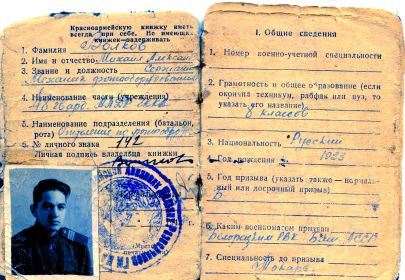 Красноармейскую книжку иметь
всегда при себе. Не имеющих
книжек — задерживать
1. Фамилия Волков
2. Имя и отчество Михаил Алексан
3. Звание и должность Сержант
Механик фотооборудования
4. Наименование части (учреждения)
5. Наименование подразделения (батальон,
рота) Отделение
6. № личного знака 142
Личная подпись владельца книжки
I. Общие сведения
1. Номер военно-учетной специальности
2. Грамотность и общее образование (если
окончил техникум, рабфак или вуз, то
указать его название)
8 классов
3. Национальность Русский
4. Год рождения 1923
5. Год призыва (указать также — нормаль-
ный или досрочный призыв)
6. Каким военкоматом призван
Белорецким РВК Баш. АССР
7. Специальность до призыва
Токарь